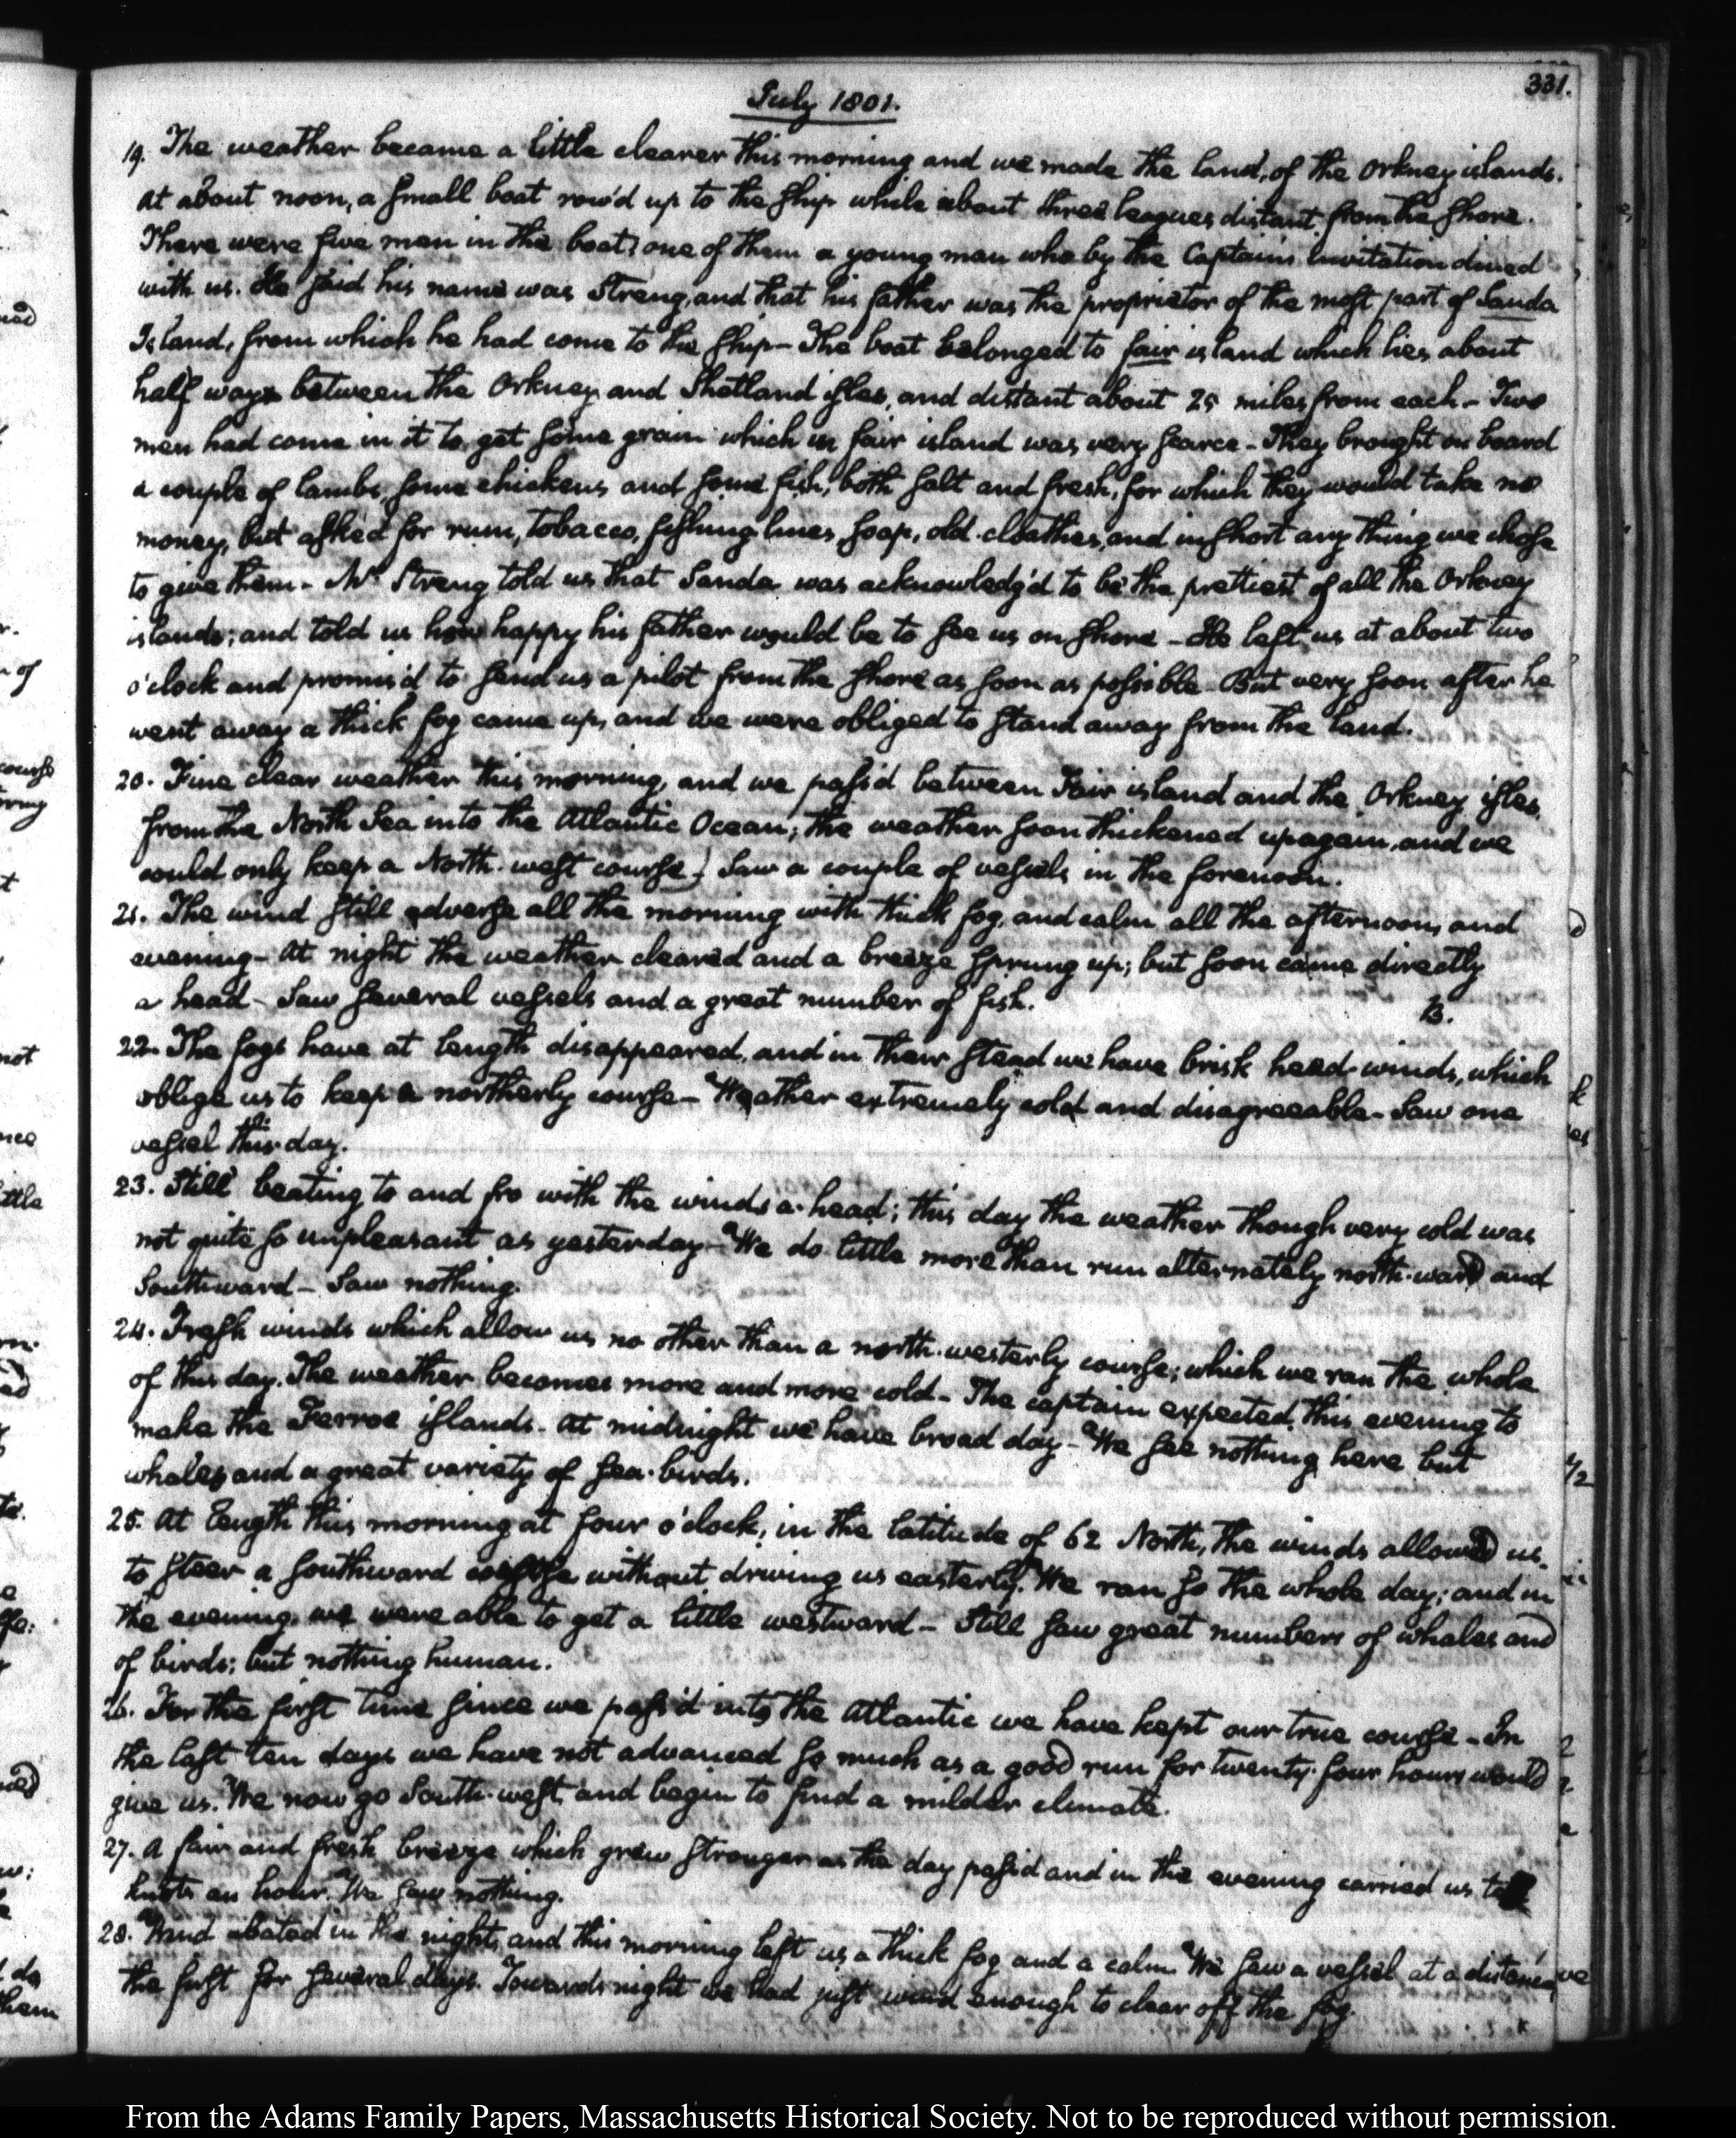 331.
July 1801.
19. The weather became a little clearer this morning and we made the land, of the Orkney islands.
At about noon, a small boat row'd up to the ship while about three leagues distant from the shore.
There were five men in the boat; one of them a young man who by the Captain's invitation dined
with us. He said his name was Strang, and that his father was the proprietor of the most part of Sanda
Island, from which he had come to the ship - The boat belonged to fair island which lies about
half way between the Orkney and Shetland isles, and distant about 25 miles from each - Two
men had come in it to get some grain which in fair island was very scarce - They brought on board
a couple of lambs, some chickens and some fish, both salt and fresh, for which they would take no
money, but asked for rum, tobacco, fishing lines, soap, old cloathes, and in short any thing we chose
to give them - Mr Strang told us that Sanda was acknowledg'd to be the prettiest of all the Orkney
islands; and told us how happy his father would be to see us on shore - He left us at about two
o'clock and promis'd to send us a pilot from the shore as soon as possible - But very soon after he
went away a thick fog came up, and we were obliged to stand away from the land.
20. Fine clear weather this morning, and we pass'd between Fair island and the Orkney isles,
from the North Sea into the Atlantic Ocean; the weather soon thickened up again, and we
could only keep a North-west course. Saw a couple of vessels in the forenoon.
21. The wind still adverse all the morning with thick fog, and calm all the afternoon, and
evening - At night the weather cleared and a breeze sprung up; but soon came directly
a head - Saw several vessels and a great number of fish.
B.
22. The fogs have at length disappeared, and in their stead we have brisk head-winds, which
oblige us to keep a northerly course - Weather extremely cold and disagreeable - Saw one
vessel this day.
23. Still beating to and fro with the winds a-head; this day the weather though very cold was
not quite so unpleasant as yesterday - We do little more than run alternately north-ward and
Southward - Saw nothing.
24. Fresh winds which allow us no other than a north-westerly course; which we ran the whole
of this day. The weather becomes more and more cold - The captain expected this evening to
make the Ferroe islands - At midnight we have broad day - We see nothing here but
whales and a great variety of sea-birds.
25. At length this morning at four o'clock, in the latitude of 62 North, the winds allowed us
to steer a southward course without driving us easterly. We ran so the whole day; and in
the evening we were able to get a little westward - Still saw great numbers of whales and
of birds; but nothing human.
26. For the first time since we pass'd into the Atlantic we have kept our true course - In
the last ten days we have not advanced so much as a good run for twenty-four hours would
give us. We now go South-west, and begin to find a milder climate.
27. A fair and fresh breeze which grew stronger as the day pass'd and in the evening carried us
knots an hour. We saw nothing.
28. Wind abated in the night, and this morning left us a thick fog and a calm. We saw a vessel at a distance,
the first for several days. Towards night we had just wind enough to clear off the fog.
From the Adams Family Papers, Massachusetts Historical Society. Not to be reproduced without permission.